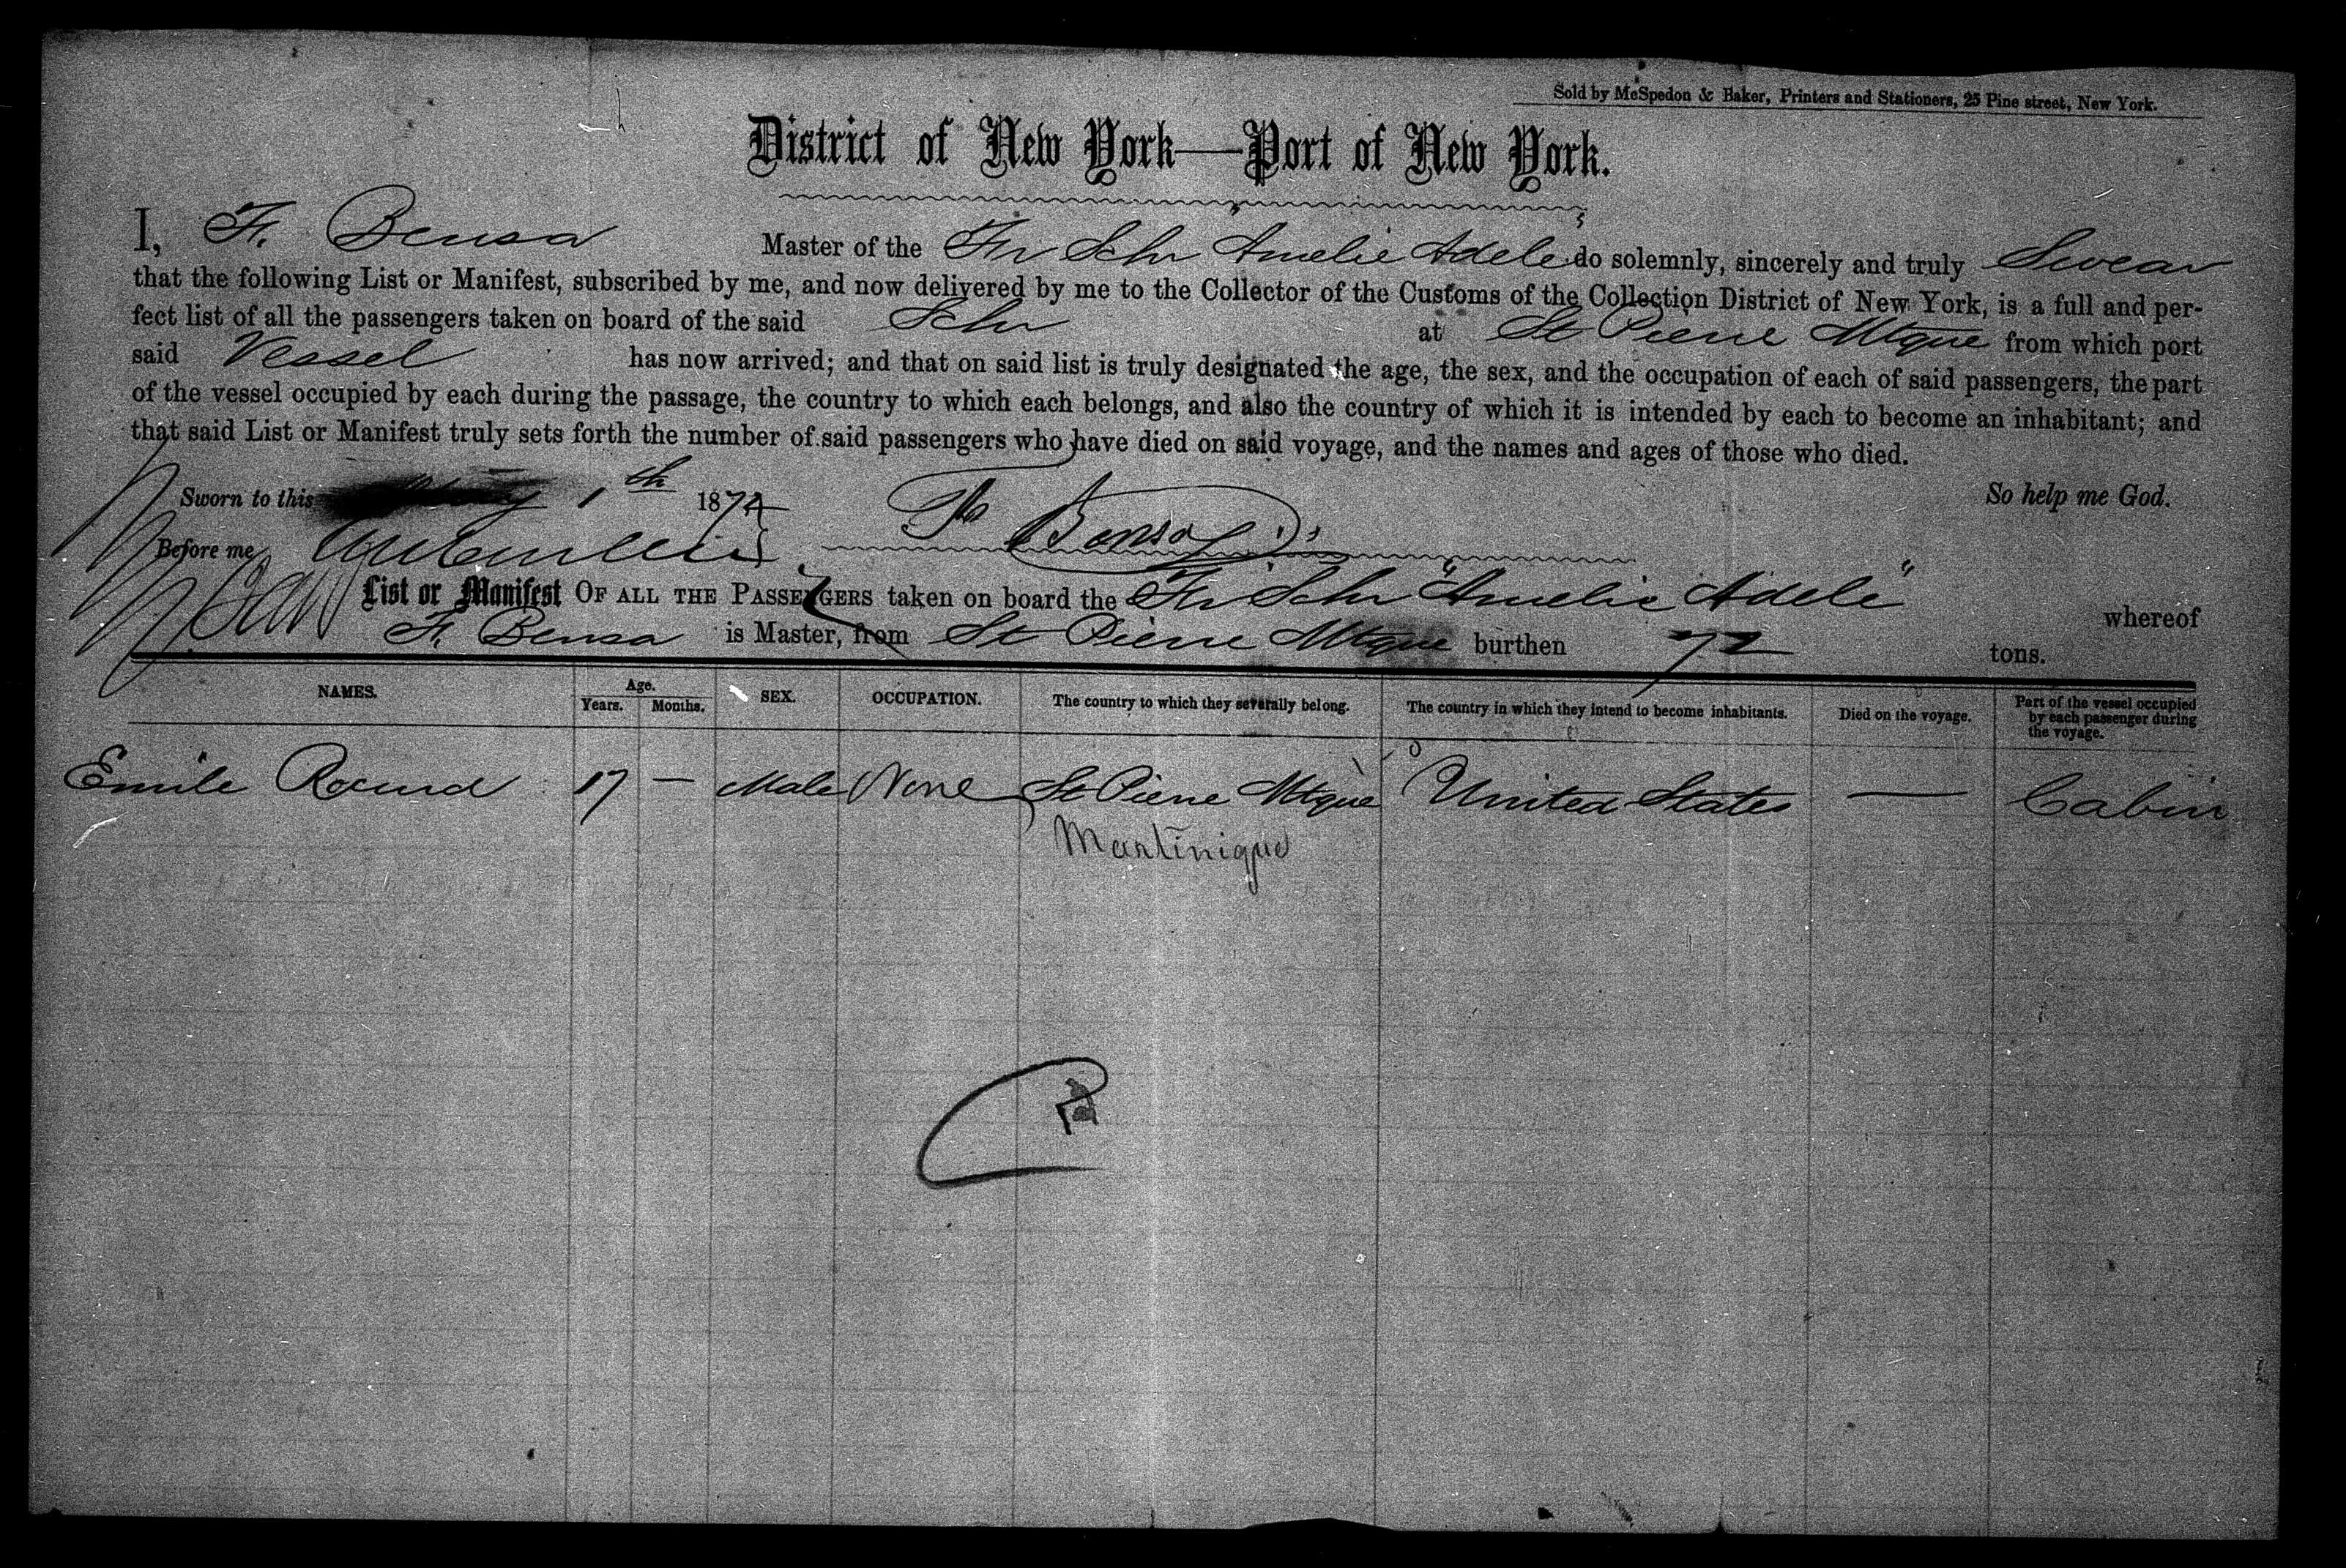 Sold by McSpedon & Baker, Printers and Stationers, 25 Pine street, New York.
District of New York—Port of New York.
I, F. Bensa Master of the Fr Schr "Amelie Adele" do solemnly, sincerely and truly Swear
that the following List or Manifest, subscribed by me, and now delivered by me to the Collector of the Customs of the Collection District of New York, is a full and per-
fect list of all the passengers taken on board of the said Schr at St Pierre Mtque from which port
said Vessel has now arrived; and that on said list is truly designated the age, the sex, and the occupation of each of said passengers, the part
of the vessel occupied by each during the passage, the country to which each belongs, and also the country of which it is intended by each to become an inhabitant; and
that said List or Manifest truly sets forth the number of said passengers who have died on said voyage, and the names and ages of those who died.
Sworn to this 1th 1872 So help me God.
Before me F Bensa
List or Manifest OF ALL THE PASSENGERS taken on board the Fr Schr "Amelie Adele" whereof
F. Bensa is Master, from St Pierre Mtque burthen 72 tons.
NAMES. Age. Years. Months. SEX. OCCUPATION. The country to which they severally belong. The country in which they intend to become inhabitants. Died on the voyage. Part of the vessel occupied by each passenger during the voyage.
Emile 17 — Male None St Pierre Mtque United States — Cabin
Martinique